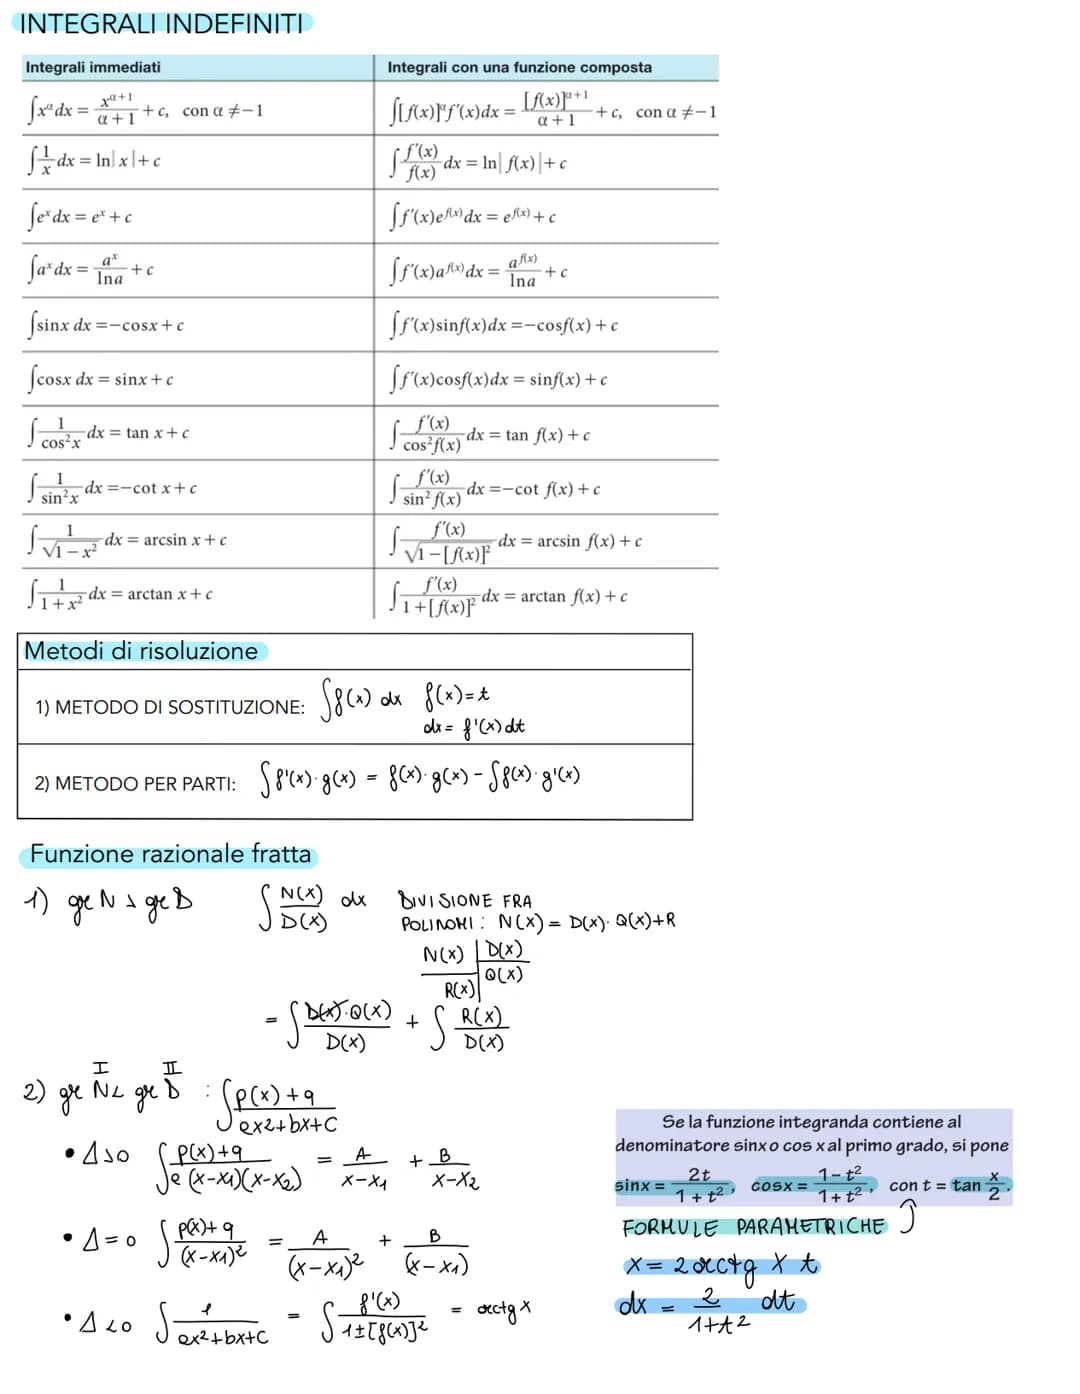 INTEGRALI INDEFINITI
Integrali immediati | Integrali con una funzione composta
∫xᵅdx = xᵅ⁺¹/(α+1) + c, con α ≠ −1 | ∫[f(x)]ᵅf'(x)dx = [f(x)]ᵅ⁺¹/(α+1) + c, con α ≠ −1
∫1/x dx = ln|x| + c | ∫f'(x)/f(x) dx = ln|f(x)| + c
∫eˣdx = eˣ + c | ∫f'(x)e^f(x)dx = e^f(x) + c
∫aˣdx = aˣ/lna + c | ∫f'(x)a^f(x)dx = a^f(x)/lna + c
∫sinx dx = −cosx + c | ∫f'(x)sinf(x)dx = −cosf(x) + c
∫cosx dx = sinx + c | ∫f'(x)cosf(x)dx = sinf(x) + c
∫1/cos²x dx = tan x + c | ∫f'(x)/cos²f(x) dx = tan f(x) + c
∫1/sin²x dx = −cot x + c | ∫f'(x)/sin² f(x) dx = −cot f(x) + c
∫1/√(1−x²) dx = arcsin x + c | ∫f'(x)/√(1−[f(x)]²) dx = arcsin f(x) + c
∫1/(1+x²) dx = arctan x + c | ∫f'(x)/(1+[f(x)]²) dx = arctan f(x) + c
Metodi di risoluzione
1) METODO DI SOSTITUZIONE: ∫f(x) dx f(x)=t
dx = f'(x) dt
2) METODO PER PARTI: ∫f'(x)·g(x) = f(x)·g(x) − ∫f(x)·g'(x)
Funzione razionale fratta
1) gr N ≥ gr D ∫N(x)/D(x) dx DIVISIONE FRA
POLINOMI: N(x) = D(x)·Q(x)+R
N(x) | D(x)
R(x) | Q(x)
= ∫D(x)·Q(x)/D(x) + ∫R(x)/D(x)
I II
2) gr N < gr D : ∫(p(x)+q)/(ax2+bx+c)
• Δ>0 ∫(p(x)+q)/(a(x-x1)(x-x2)) = A/(x-x1) + B/(x-x2)
• Δ=0 ∫(p(x)+q)/(x-x1)² = A/(x-x1)² + B/(x-x1)
• Δ<0 ∫1/(ax²+bx+c) = ∫f'(x)/(1±[f(x)]²) = arctg x
Se la funzione integranda contiene al
denominatore sinx o cos x al primo grado, si pone
sinx = 2t/(1+t²), cosx = (1−t²)/(1+t²), con t = tan x/2.
FORMULE PARAMETRICHE
x = 2 arctg x t
dx = 2/(1+t²) dt